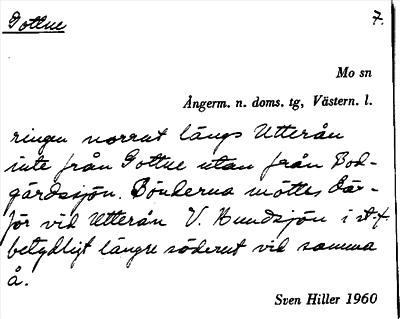 Gottne 7.
Mo sn
Ångerm. n. doms. tg, Västern. l.
ringen norrut längs Utterån
inte från Gottne utan från Bod-
gårdssjön. Bönderna möttes där-
för vid Utterån V. Hundsjön i st. f.
betydligt längre söderut vid samma
å.
Sven Hiller 1960